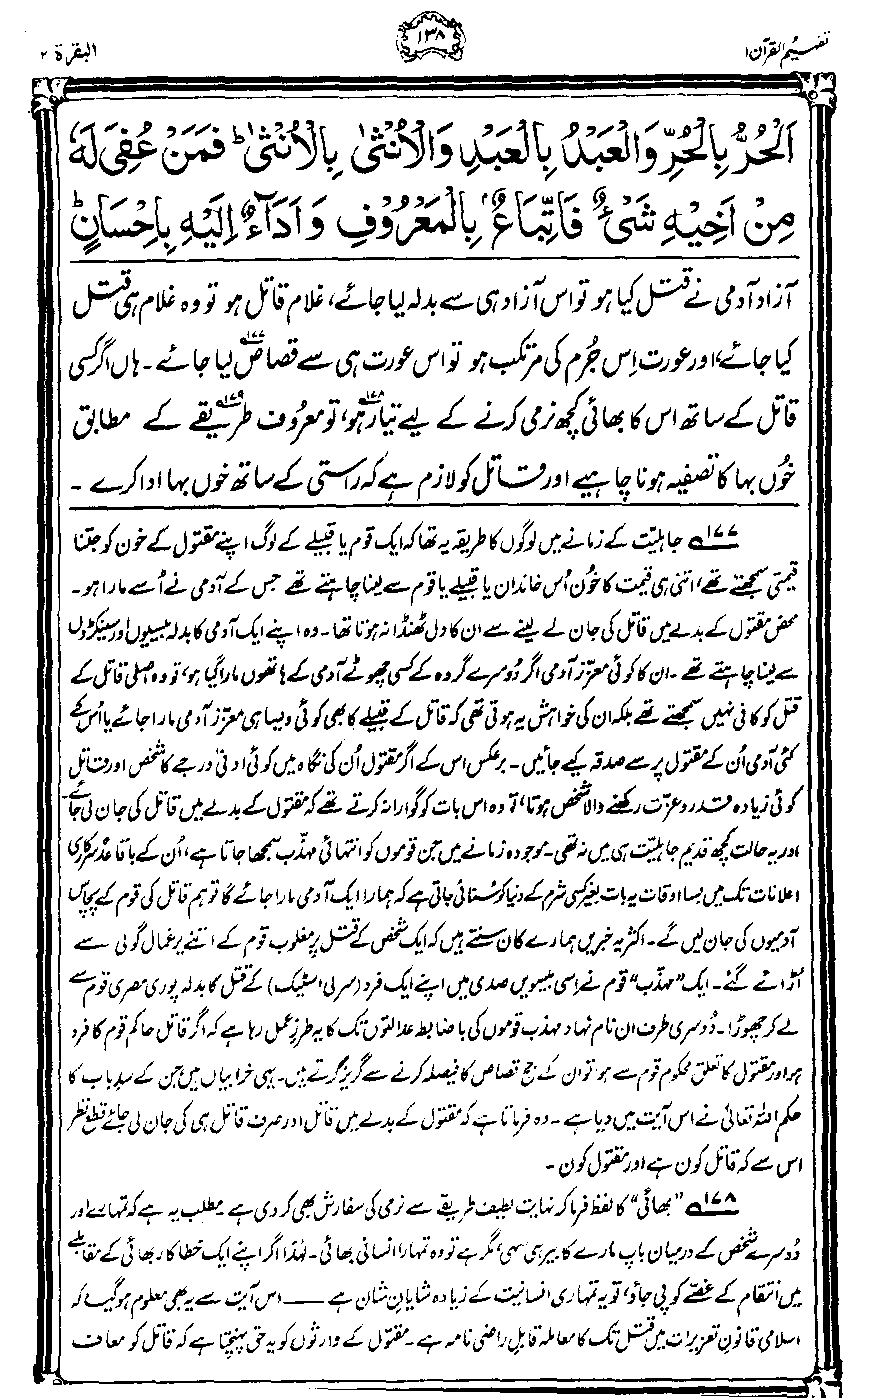 تفہیم القرآن ۱
۱۳۸
البقرۃ ۲
اَلْحُرُّ بِالْحُرِّ وَالْعَبْدُ بِالْعَبْدِ وَالْاُنْثٰى بِالْاُنْثٰى ؕ فَمَنْ عُفِیَ لَهٗ
مِنْ اَخِیْهِ شَیْءٌ فَاتِّبَاعٌۢ بِالْمَعْرُوْفِ وَ اَدَآءٌ اِلَیْهِ بِاِحْسَانٍ ؕ
آزاد آدمی نے قتل کیا ہو تو اس آزاد ہی سے بدلہ لیا جائے، غلام قاتل ہو تو وہ غلام ہی قتل
کیا جائے، اور عورت اِس جُرم کی مرتکب ہو تو اس عورت ہی سے قصاص۱۷۷ لیا جائے۔ ہاں اگر کسی
قاتل کے ساتھ اس کا بھائی کچھ نرمی کرنے کے لیے تیار۱۷۸ ہو، تو معرُوف طریقے۱۷۹ کے مطابق
خُوں بہا کا تصفیہ ہونا چاہیے اور قاتل کو لازم ہے کہ راستی کے ساتھ خوں بہا ادا کرے۔
۱۷۷؎ جاہلیّت کے زمانے میں لوگوں کا طریقہ یہ تھا کہ ایک قوم یا قبیلے کے لوگ اپنے مقتول کے خون کو جتنا
قیمتی سمجھتے تھے، اتنی ہی قیمت کا خُون اُس خاندان یا قبیلے یا قوم سے لینا چاہتے تھے جس کے آدمی نے اُسے مارا ہو۔
محض مقتول کے بدلے میں قاتل کی جان لے لینے سے ان کا دل ٹھنڈا نہ ہوتا تھا۔ وہ اپنے ایک آدمی کا بدلہ بیسیوں اور سینکڑوں
سے لینا چاہتے تھے۔ ان کا کوئی معزّز آدمی اگر دُوسرے گروہ کے کسی چھوٹے آدمی کے ہاتھوں مارا گیا ہو، تو وہ اصلی قاتل کے
قتل کو کافی نہیں سمجھتے تھے بلکہ ان کی خواہش یہ ہوتی تھی کہ قاتل کے قبیلے کا بھی کوئی ویسا ہی معزّز آدمی مارا جائے یا اُس کے
کئی آدمی اُن کے مقتول پر سے صدقہ کیے جائیں۔ برعکس اس کے اگر مقتول اُن کی نگاہ میں کوئی ادنیٰ درجے کا شخص اور قاتل
کوئی زیادہ قدر و عزّت رکھنے والا شخص ہوتا، تو وہ اس بات کو گوارا نہ کرتے تھے کہ مقتول کے بدلے میں قاتل کی جان لی جائے
اور یہ حالت کچھ قدیم جاہلیّت ہی میں نہ تھی۔ موجودہ زمانے میں جن قوموں کو انتہائی مہذّب سمجھا جاتا ہے، اُن کے باقاعدہ سرکاری
اعلانات تک میں بسا اوقات یہ بات بغیر کسی شرم کے دنیا کو سُنائی جاتی ہے کہ ہمارا ایک آدمی مارا جائے گا تو ہم قاتل کی قوم کے پچاس
آدمیوں کی جان لیں گے۔ اکثر یہ خبریں ہمارے کان سنتے ہیں کہ ایک شخص کے قتل پر مغلوب قوم کے اتنے یرغمال گولی سے
اُڑائے گئے۔ ایک ”مہذّب“ قوم نے اسی بیسویں صدی میں اپنے ایک فرد (سر لی اسٹیک) کے قتل کا بدلہ پوری مصری قوم سے
لے کر چھوڑا۔ دُوسری طرف ان نام نہاد مہذب قوموں کی باضابطہ عدالتوں تک کا یہ طرزِ عمل رہا ہے کہ اگر قاتل حاکم قوم کا فرد
ہو اور مقتول کا تعلق محکوم قوم سے ہو تو ان کے جج قصاص کا فیصلہ کرنے سے گریز کرتے ہیں۔ یہی خرابیاں ہیں جن کے سدِّ باب کا
حکم اللہ تعالیٰ نے اس آیت میں دیا ہے۔ وہ فرماتا ہے کہ مقتول کے بدلے میں قاتل اور صرف قاتل ہی کی جان لی جائے قطع نظر
اس سے کہ قاتل کون ہے اور مقتول کون۔
۱۷۸؎ ”بھائی“ کا لفظ فرما کر نہایت لطیف طریقے سے نرمی کی سفارش بھی کر دی ہے۔ مطلب یہ ہے کہ تمہارے اور
دُوسرے شخص کے درمیان باپ مارے کا بیر ہی سہی، مگر ہے تو وہ تمہارا انسانی بھائی۔ لہٰذا اگر اپنے ایک خطا کار بھائی کے مقابلے
میں انتقام کے غصّے کو پی جاؤ، تو یہ تمہاری انسانیت کے زیادہ شایانِ شان ہے —— اس آیت سے یہ بھی معلوم ہو گیا کہ
اسلامی قانونِ تعزیرات میں قتل تک کا معاملہ قابلِ راضی نامہ ہے۔ مقتول کے وارثوں کو یہ حق پہنچتا ہے کہ قاتل کو معاف